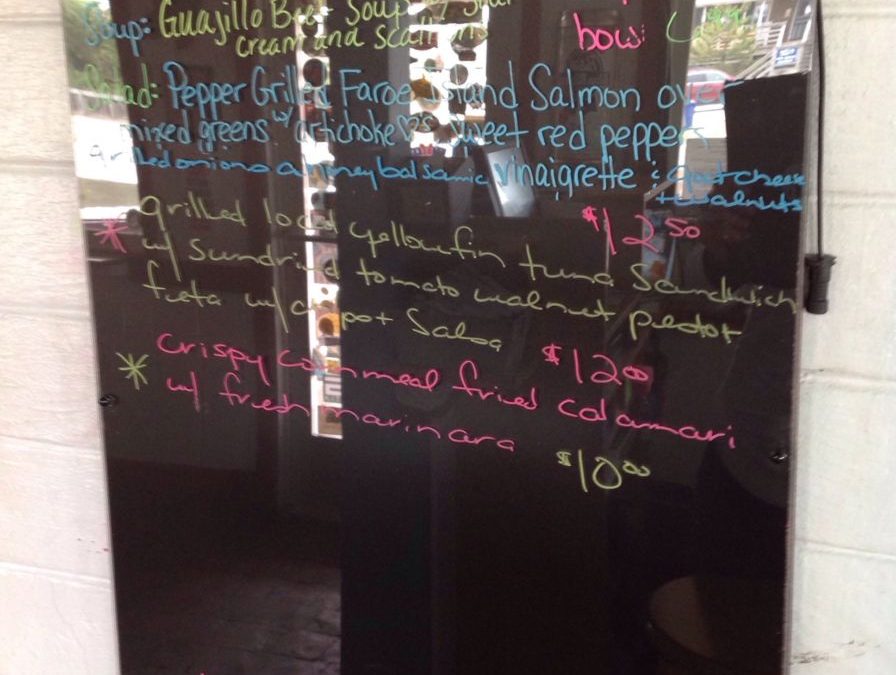 Soup: Guajillo Beef Soup w/ Sour
cream and scallions
bowl 6.99
Salad: Pepper Grilled Faroe Island Salmon over
mixed greens w/ artichoke ♡s, sweet red peppers,
grilled onions a honey balsamic vinaigrette & goat cheese
+ walnuts
$12.50
* grilled local yellowfin tuna Sandwich
w/ Sundried tomato walnut pesto +
feta w/ salsa
$12.00
* Crispy cornmeal fried calamari
w/ fresh marinara
$10.00